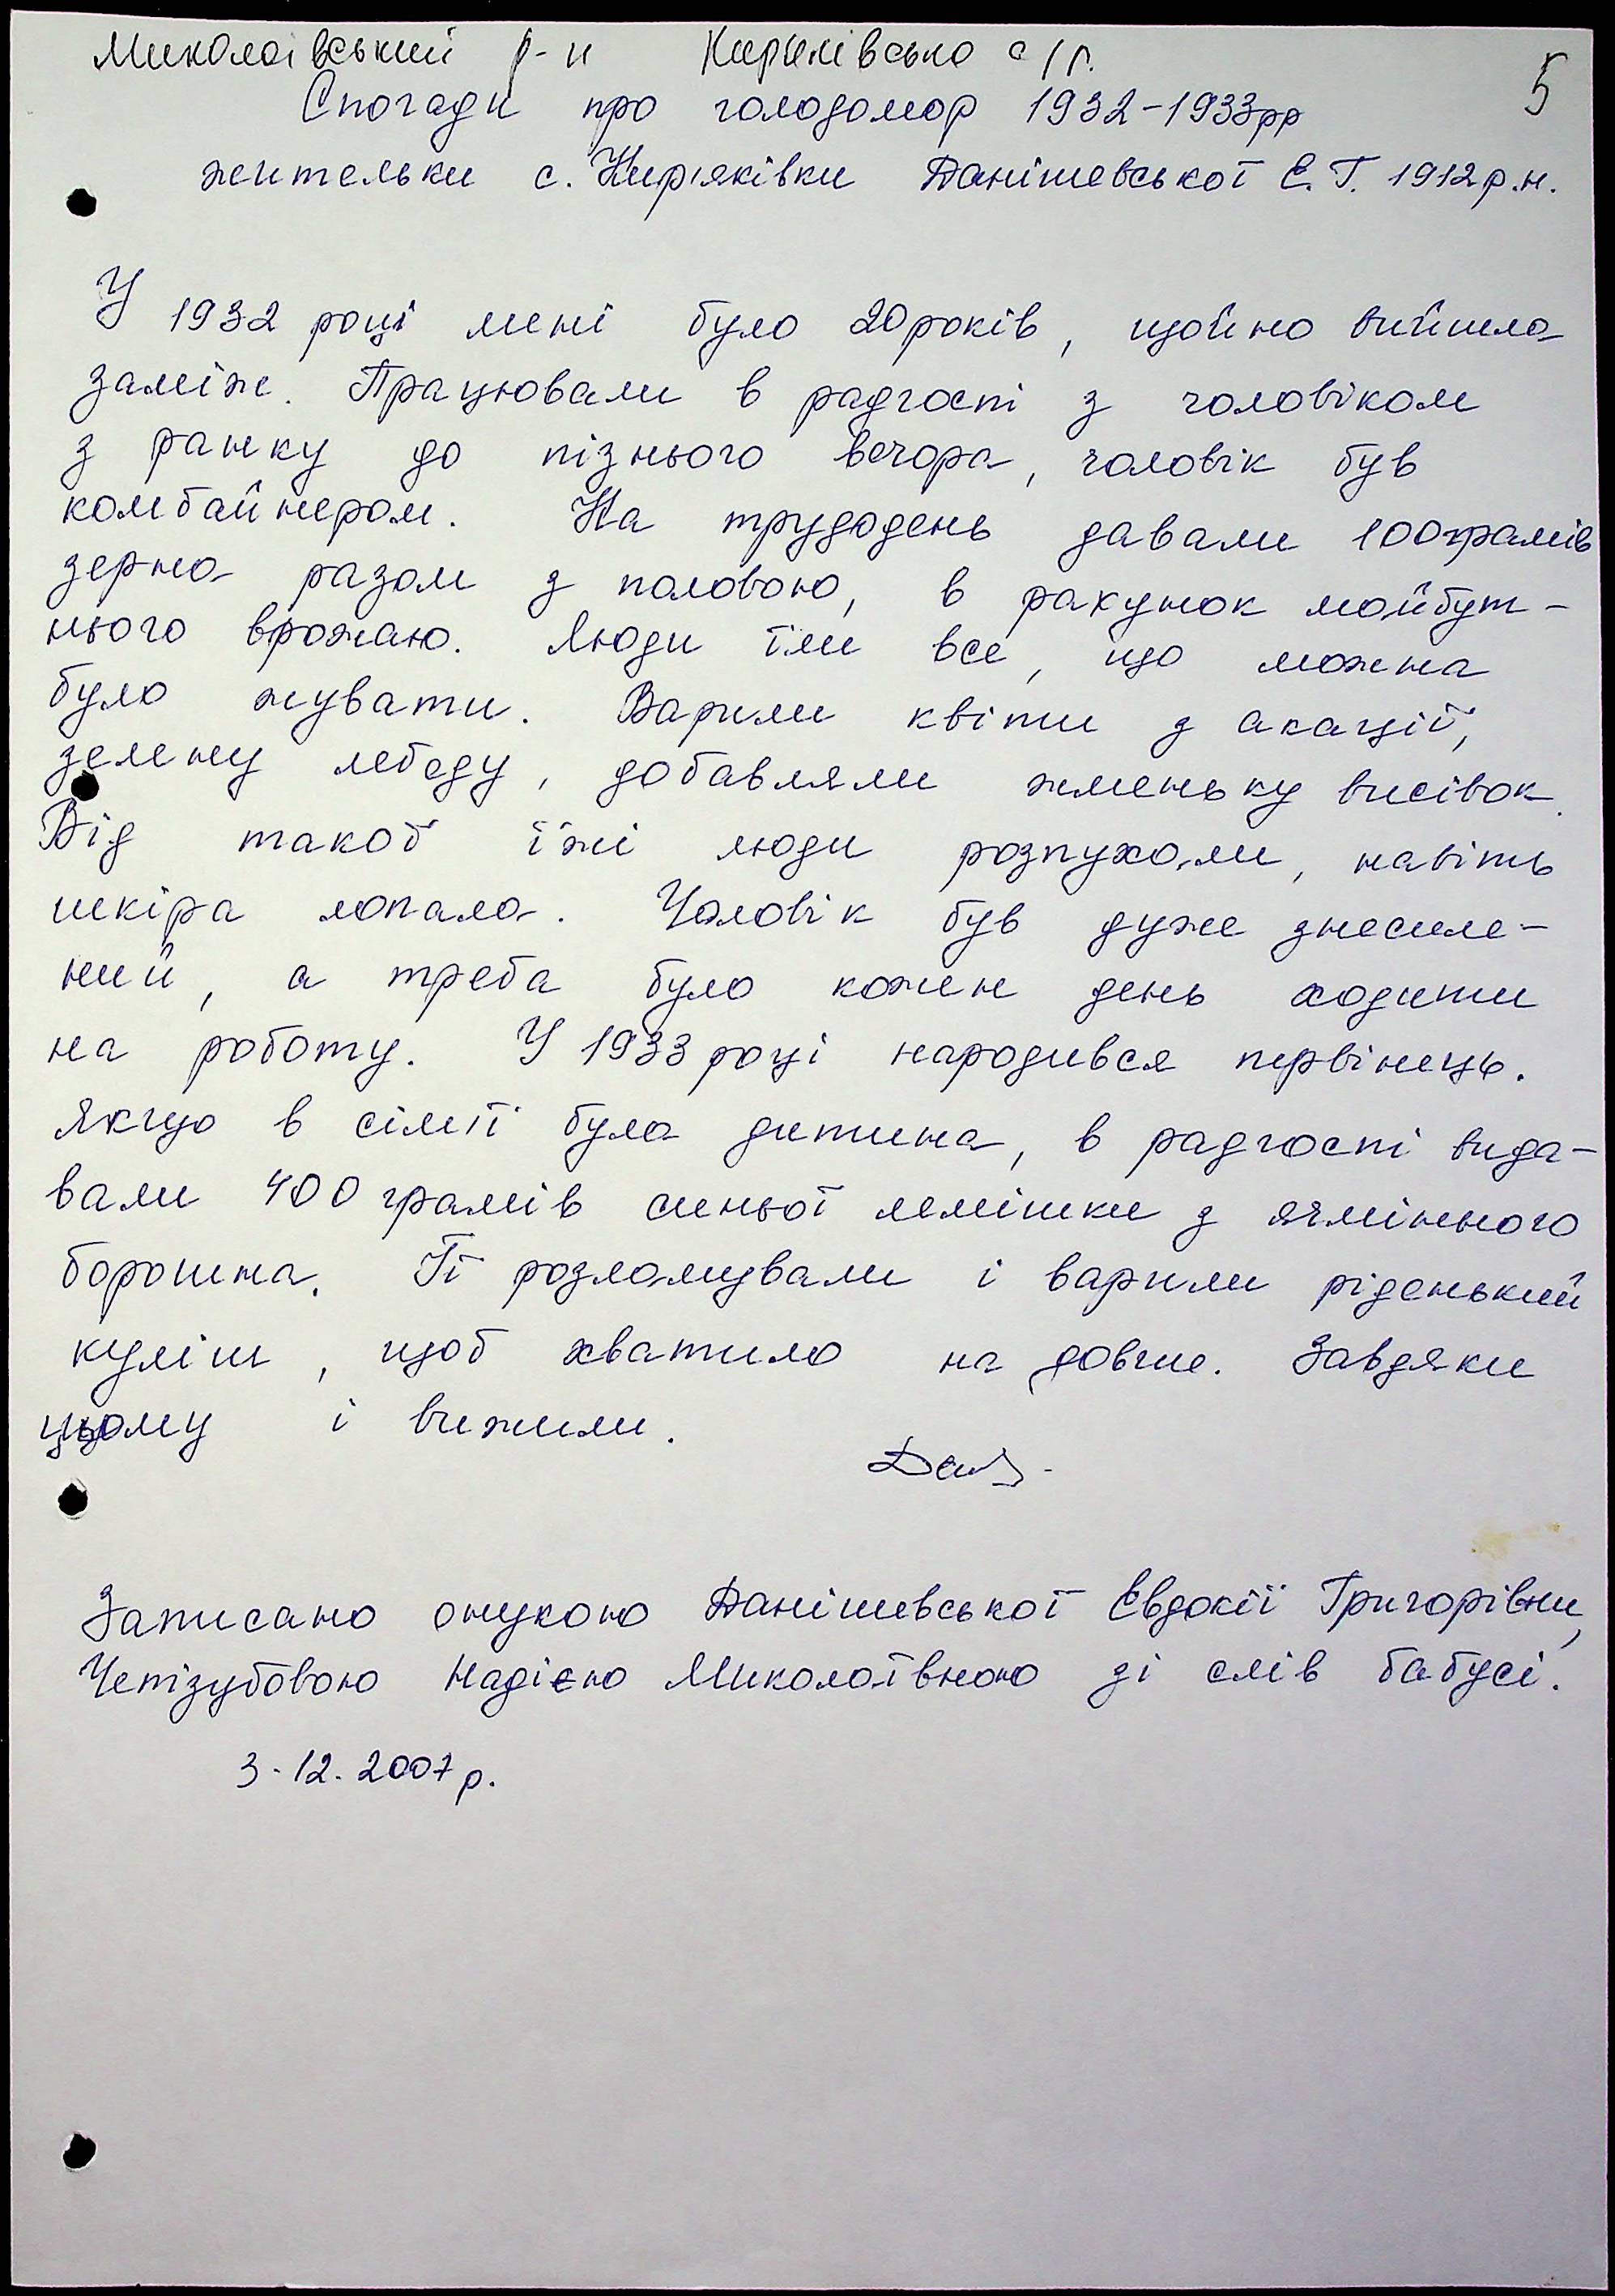 Миколаївський р-н Кир'яківська с/р.
5
Спогади про голодомор 1932-1933рр
жительки с. Кир'яківки Данішевської Є. Г. 1912р.н.
У 1932 році мені було 20 років, щойно вийшла
заміж. Працювали в радгоспі з чоловіком
з ранку до пізнього вечора, чоловік був
комбайнером. На трудодень давали 100 грамів
зерна разом з половою, в рахунок майбут-
нього врожаю. Люди їли все, що можна
було жувати. Варили квіти з акації,
зелену лебеду, добавляли жменьку висівок.
Від такої їжі люди розпухали, навіть
шкіра лопала. Чоловік був дуже знесиле-
ний, а треба було кожен день ходити
на роботу. У 1933 році народився первінець.
Якщо в сім'ї була дитина, в радгоспі вида-
вали 400 грамів синьої лемішки з ячмінного
борошна. Її розламували і варили ріденький
куліш, щоб хватило на довше. Завдяки
цьому і вижили.
Записано онукою Данішевської Євдокії Григорівни,
Чепізубовою Надією Миколаївною зі слів бабусі.
3.12.2007р.